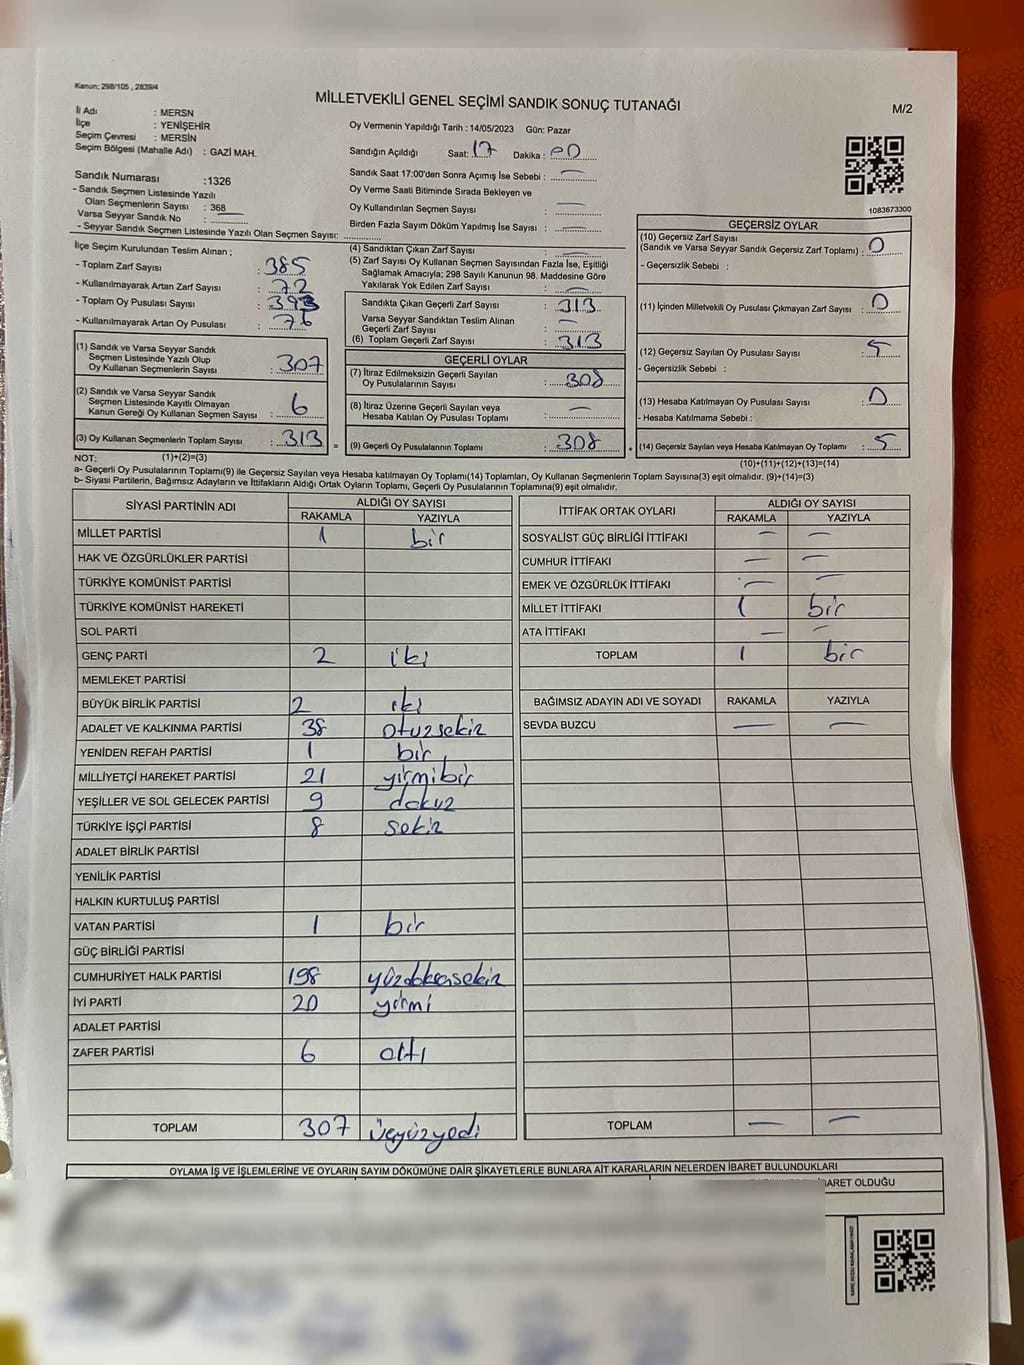 Kanun; 298/105 , 2839/4
MİLLETVEKİLİ GENEL SEÇİMİ SANDIK SONUÇ TUTANAĞI
M/2
İl Adı : MERSN
İlçe : YENİŞEHİR
Seçim Çevresi : MERSİN
Seçim Bölgesi (Mahalle Adı) : GAZİ MAH.
Sandık Numarası :1326
- Sandık Seçmen Listesinde Yazılı
Olan Seçmenlerin Sayısı : 368
Varsa Seyyar Sandık No :
- Seyyar Sandık Seçmen Listesinde Yazılı Olan Seçmen Sayısı:
Oy Vermenin Yapıldığı Tarih : 14/05/2023 Gün: Pazar
Sandığın Açıldığı Saat: 17 Dakika : 00
Sandık Saat 17:00'den Sonra Açımış İse Sebebi : —
Oy Verme Saati Bitiminde Sırada Bekleyen ve
Oy Kullandırılan Seçmen Sayısı : —
Birden Fazla Sayım Döküm Yapılmış İse Sayısı : —
1083673300
İlçe Seçim Kurulundan Teslim Alınan ;
- Toplam Zarf Sayısı : 385
- Kullanılmayarak Artan Zarf Sayısı : 72
- Toplam Oy Pusulası Sayısı :
- Kullanılmayarak Artan Oy Pusulası : 76
(1) Sandık ve Varsa Seyyar Sandık
Seçmen Listesinde Yazılı Olup
Oy Kullanan Seçmenlerin Sayısı : 307
(2) Sandık ve Varsa Seyyar Sandık
Seçmen Listesinde Kayıtlı Olmayan
Kanun Gereği Oy Kullanan Seçmen Sayısı : 6
(3) Oy Kullanan Seçmenlerin Toplam Sayısı : 313 =
(4) Sandıktan Çıkan Zarf Sayısı : —
(5) Zarf Sayısı Oy Kullanan Seçmen Sayısından Fazla İse, Eşitliği
Sağlamak Amacıyla; 298 Sayılı Kanunun 98. Maddesine Göre
Yakılarak Yok Edilen Zarf Sayısı : —
Sandıkta Çıkan Geçerli Zarf Sayısı : 313
Varsa Seyyar Sandıktan Teslim Alınan
Geçerli Zarf Sayısı : —
(6) Toplam Geçerli Zarf Sayısı : 313
GEÇERLİ OYLAR
(7) İtiraz Edilmeksizin Geçerli Sayılan
Oy Pusulalarının Sayısı : 308
(8) İtiraz Üzerine Geçerli Sayılan veya
Hesaba Katılan Oy Pusulası Toplamı : —
(9) Geçerli Oy Pusulalarının Toplamı : 308 +
GEÇERSİZ OYLAR
(10) Geçersiz Zarf Sayısı
(Sandık ve Varsa Seyyar Sandık Geçersiz Zarf Toplamı) : 0
- Geçersizlik Sebebi :
(11) İçinden Milletvekili Oy Pusulası Çıkmayan Zarf Sayısı : 0
(12) Geçersiz Sayılan Oy Pusulası Sayısı : 5
- Geçersizlik Sebebi :
(13) Hesaba Katılmayan Oy Pusulası Sayısı : 0
- Hesaba Katılmama Sebebi :
(14) Geçersiz Sayılan veya Hesaba Katılmayan Oy Toplamı : 5
NOT: (1)+(2)=(3)
(10)+(11)+(12)+(13)=(14)
a- Geçerli Oy Pusulalarının Toplamı(9) ile Geçersiz Sayılan veya Hesaba katılmayan Oy Toplamı(14) Toplamları, Oy Kullanan Seçmenlerin Toplam Sayısına(3) eşit olmalıdır. (9)+(14)=(3)
b- Siyasi Partilerin, Bağımsız Adayların ve İttifakların Aldığı Ortak Oyların Toplamı, Geçerli Oy Pusulalarının Toplamına(9) eşit olmalıdır.
SİYASİ PARTİNİN ADI ALDIĞI OY SAYISI
RAKAMLA YAZIYLA
MİLLET PARTİSİ 1 bir
HAK VE ÖZGÜRLÜKLER PARTİSİ
TÜRKİYE KOMÜNİST PARTİSİ
TÜRKİYE KOMÜNİST HAREKETİ
SOL PARTİ
GENÇ PARTİ 2 iki
MEMLEKET PARTİSİ
BÜYÜK BİRLİK PARTİSİ 2 iki
ADALET VE KALKINMA PARTİSİ 38 otuzsekiz
YENİDEN REFAH PARTİSİ 1 bir
MİLLİYETÇİ HAREKET PARTİSİ 21 yirmibir
YEŞİLLER VE SOL GELECEK PARTİSİ 9 dokuz
TÜRKİYE İŞÇİ PARTİSİ 8 sekiz
ADALET BİRLİK PARTİSİ
YENİLİK PARTİSİ
HALKIN KURTULUŞ PARTİSİ
VATAN PARTİSİ 1 bir
GÜÇ BİRLİĞİ PARTİSİ
CUMHURİYET HALK PARTİSİ 198
İYİ PARTİ 20 yirmi
ADALET PARTİSİ
ZAFER PARTİSİ 6 altı
TOPLAM 307 üçyüzyedi
İTTİFAK ORTAK OYLARI ALDIĞI OY SAYISI
RAKAMLA YAZIYLA
SOSYALİST GÜÇ BİRLİĞİ İTTİFAKI — —
CUMHUR İTTİFAKI — —
EMEK VE ÖZGÜRLÜK İTTİFAKI — —
MİLLET İTTİFAKI 1 bir
ATA İTTİFAKI — —
TOPLAM 1 bir
BAĞIMSIZ ADAYIN ADI VE SOYADI RAKAMLA YAZIYLA
SEVDA BUZCU — —
TOPLAM — —
OYLAMA İŞ VE İŞLEMLERİNE VE OYLARIN SAYIM DÖKÜMÜNE DAİR ŞİKAYETLERLE BUNLARA AİT KARARLARIN NELERDEN İBARET BULUNDUKLARI
BARET OLDUĞU